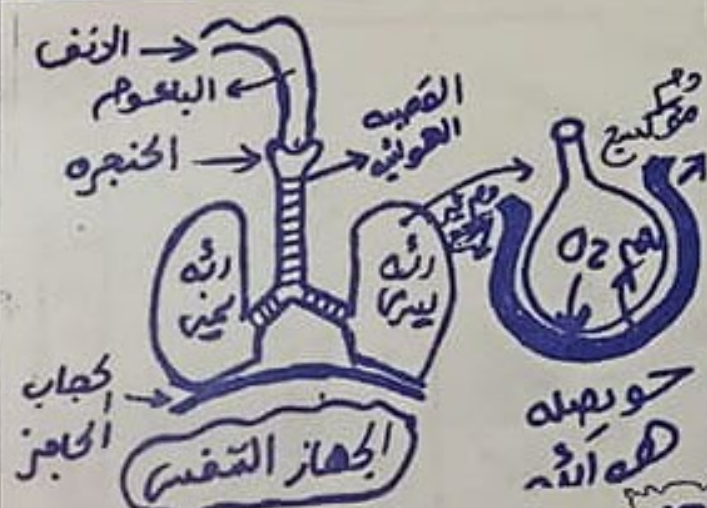 الانف
البلعوم
الحنجره
القصبه
الهوائيه
رئه
يمنى
رئه
يسرى
الحجاب
الحاجز
الجهاز التنفسي
دم
مؤكسج
دم غير
O2
حويصله
هوائيه